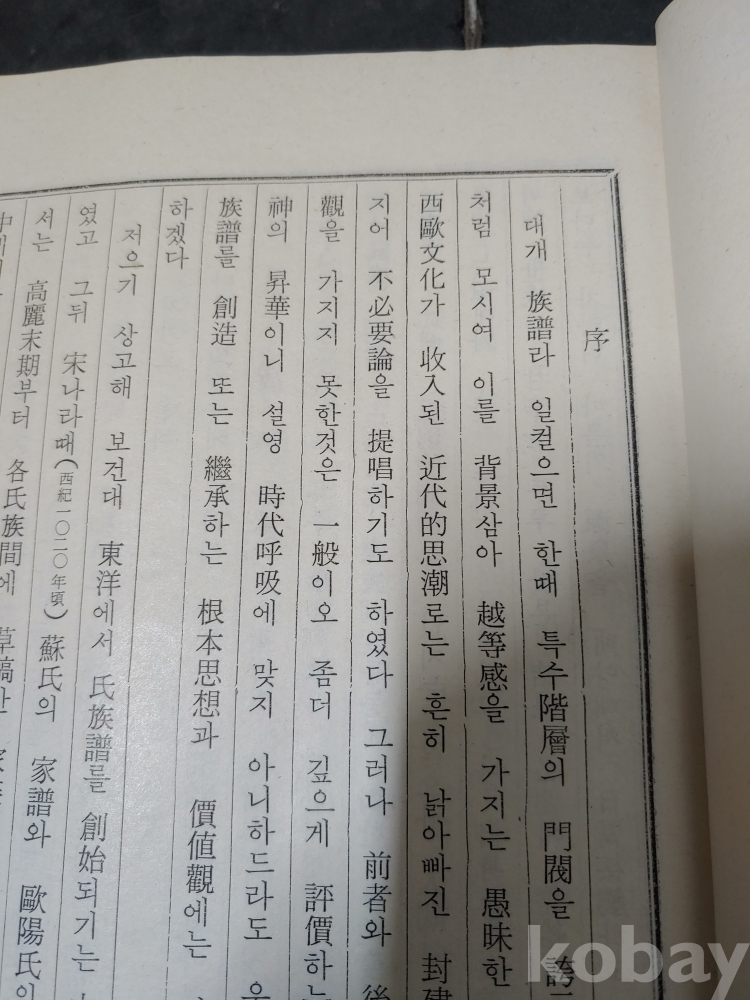 序
대개 族譜라 일컬으면 한때 특수階層의 門閥을 誇
처럼 모시여 이를 背景삼아 越等感을 가지는 愚昧한
西歐文化가 收入된 近代的思潮로는 흔히 낡아빠진 封建
지어 不必要論을 提唱하기도 하였다 그러나 前者와 後
觀을 가지지 못한것은 一般이오 좀더 깊으게 評價하는
神의 昇華이니 설영 時代呼吸에 맞지 아니하드라도
族譜를 創造 또는 繼承하는 根本思想과 價值觀에는
하겠다
저으기 상고해 보건대 東洋에서 氏族譜를 創始되기는
였고 그뒤 宋나라때(西紀一〇二〇年頃) 蘇氏의 家譜와 歐陽氏의
서는 高麗末期부터 各氏族間에 草稿한
kobay